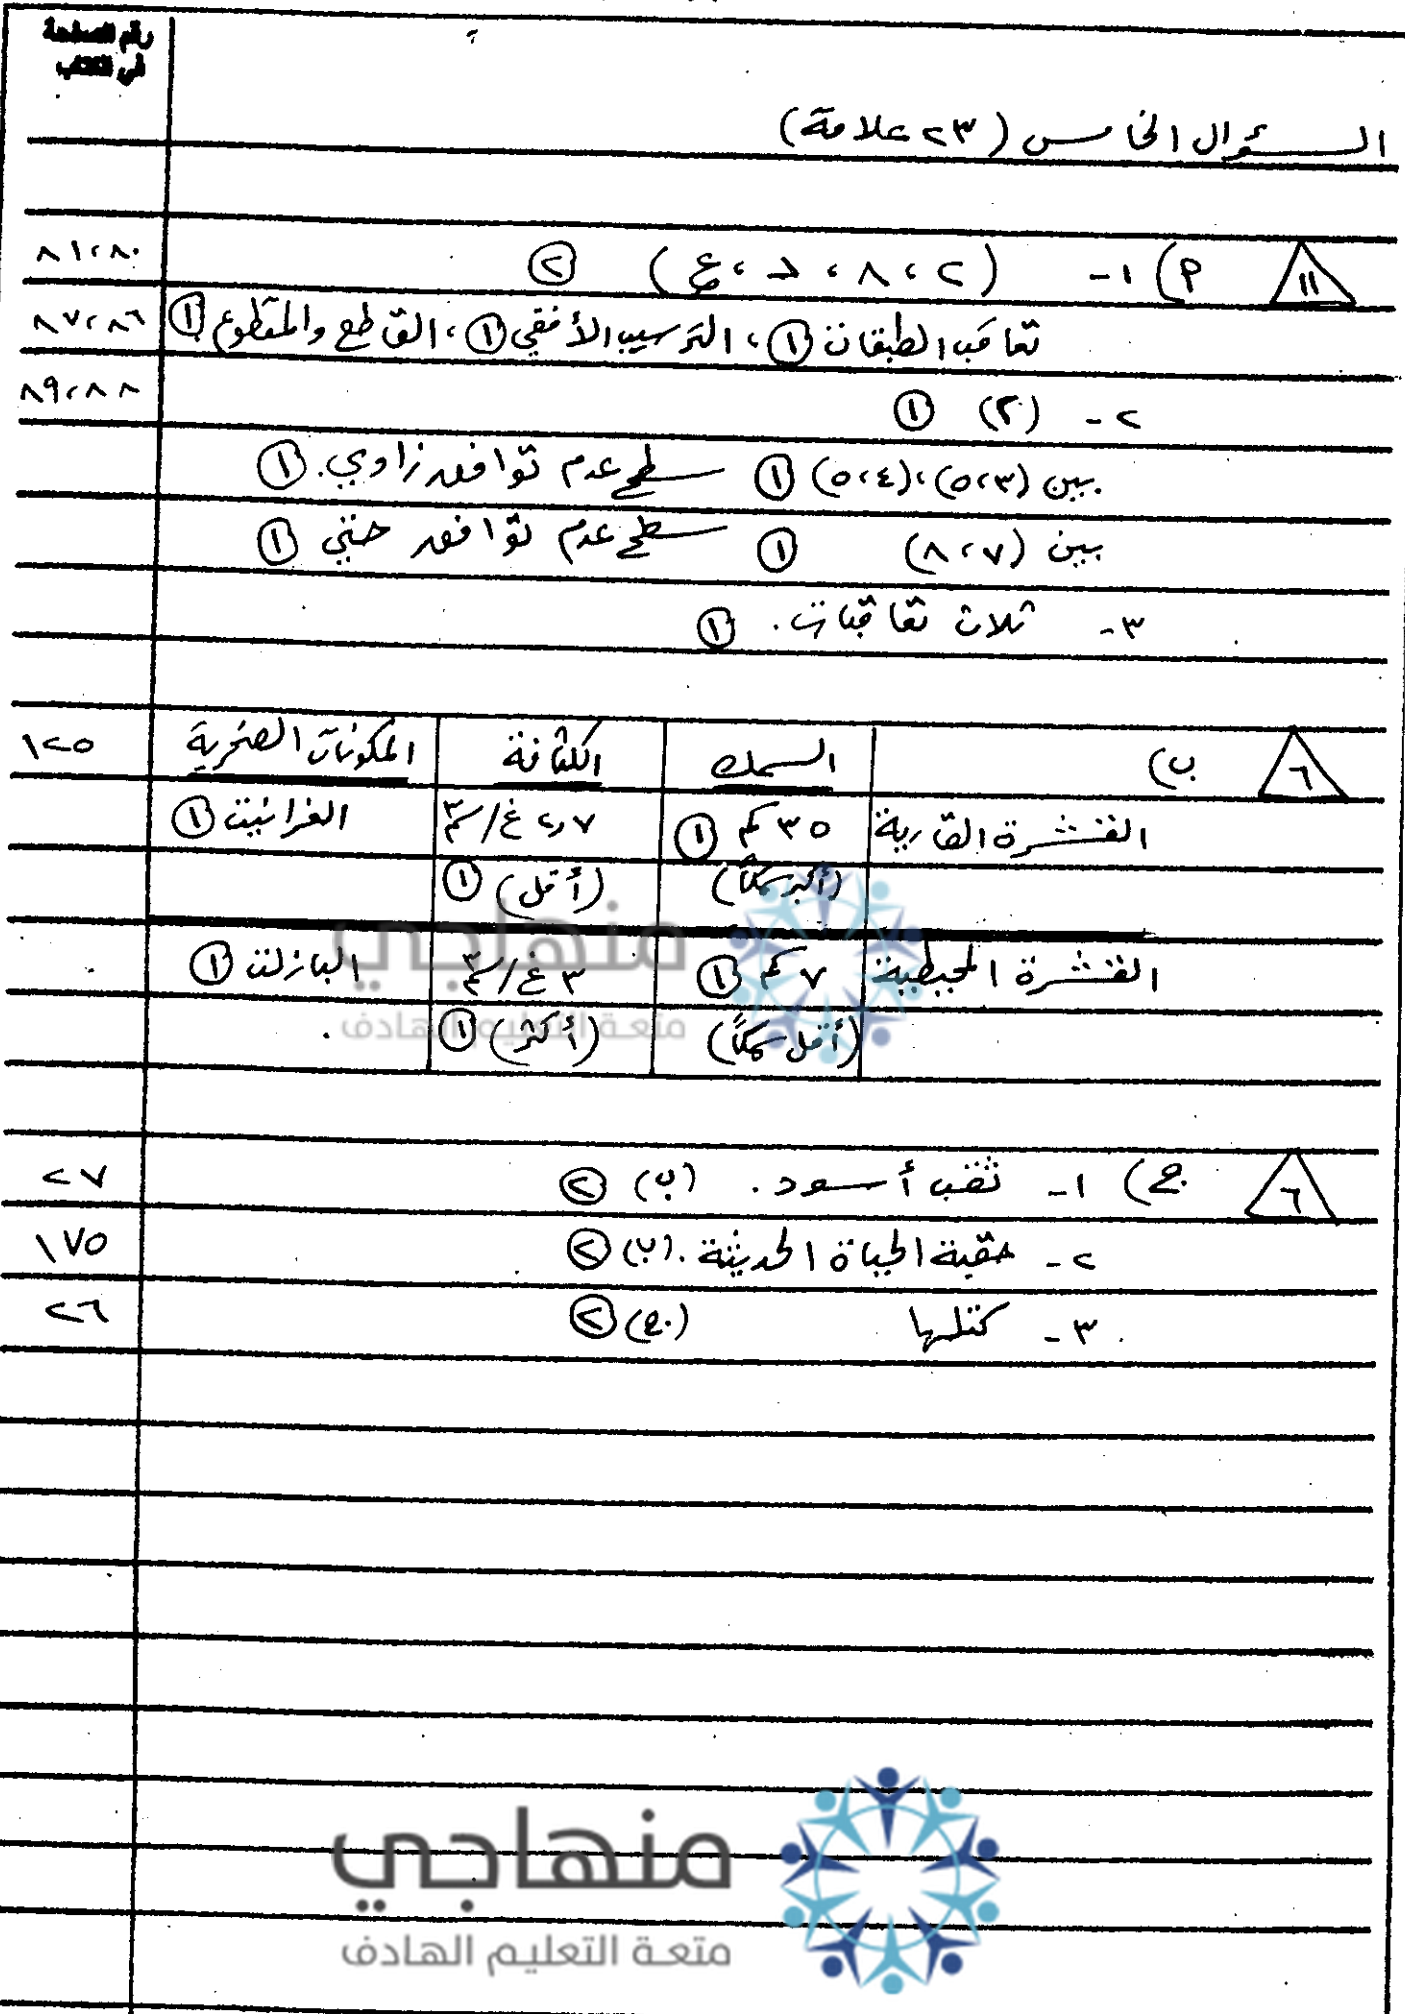 رقم الصفحة
في الكتاب
السؤال الخامس (٢٣ علامة)
١١ أ) ١- (٢، ٨، د، ع) ② ٨١،٨٠
تعاقب الطبقات ①، الترسيب الأفقي ①، القاطع والمقطوع ① ٨٧،٨٦
٢- (٢) ① ٨٩،٨٨
بين (٥،٣)، (٥،٤) ① سطح عدم توافق زاوي. ①
بين (٨،٧) ① سطح عدم توافق حتي ①
٣- ثلاث تعاقبات. ①
٦ ب) السمك الكثافة المكونات الصخرية ١٢٥
القشرة القارية ٣٥ كم ① ٢٫٧ غ/سم٣ الغرانيت ①
(أكبر سمكاً) (أقل) ①
القشرة المحيطية ٧ كم ① ٣ غ/سم٣ البازلت ①
(أقل سمكاً) (أكثر) ①
منهاجي
متعة التعليم الهادف
٦ ج) ١- ثقب أسود. (ب) ② ٢٧
٢- حقبة الحياة الحديثة. (ب) ② ١٧٥
٣- كتلها (ج) ② ٢٦
منهاجي
متعة التعليم الهادف